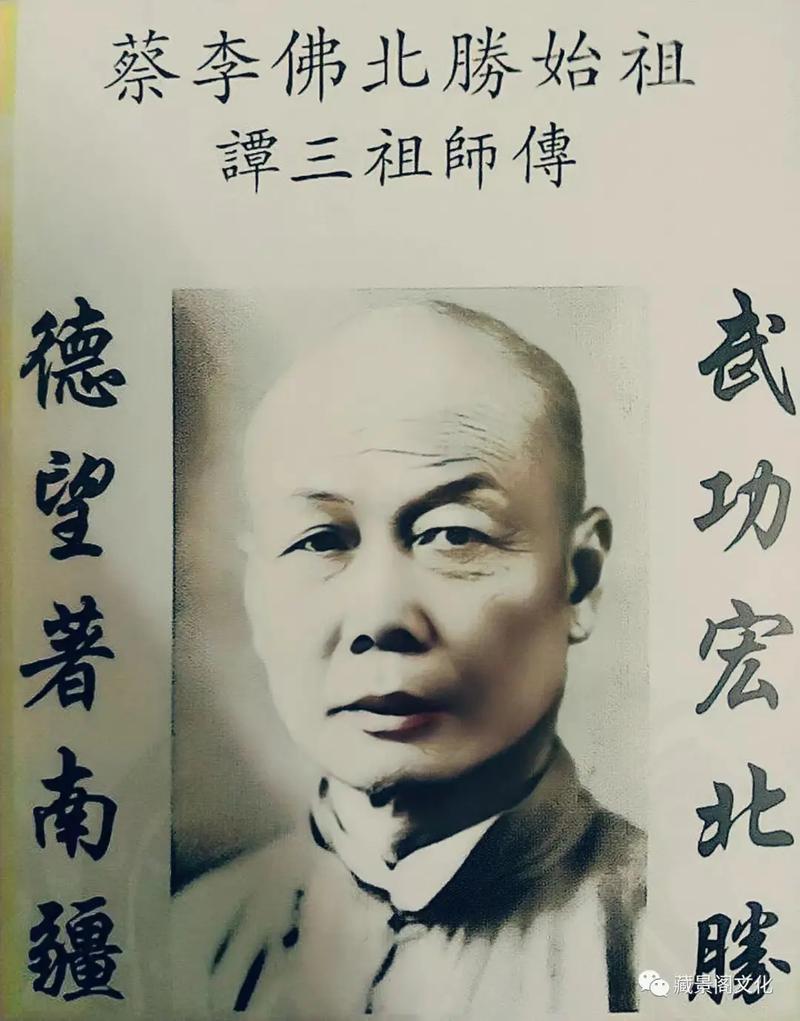 蔡李佛北勝始祖
譚三祖師傳
武功宏北勝
德望著南疆
藏景阁文化